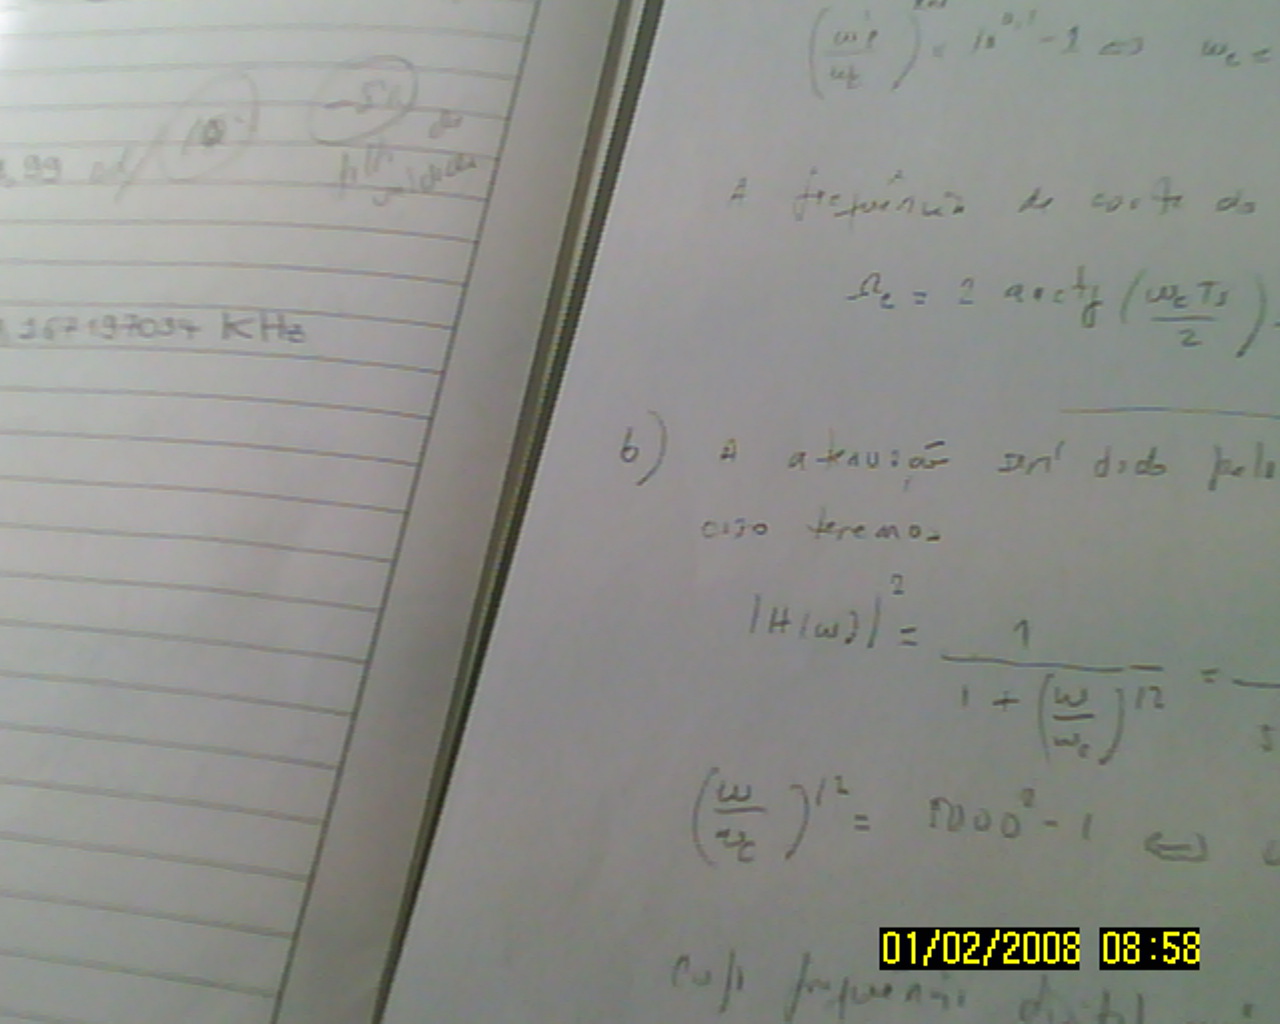 -5%
,99
10
,367197094 KHz
(ωp/ωc) = 10^0,1 - 1 ⇔ ωc =
A frequência de corte do
Ωc = 2 arctg (ωc Ts / 2)
b) A atenuação será dada pela
caso teremos
|H(ω)|² = 1 / (1 + (ω/ωc)^12) =
(ω/ωc)^12 = 1000² - 1 ⇔
Cuja frequência digital
01/02/2008 08:58